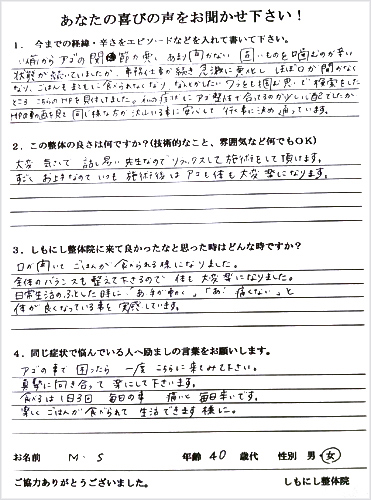 あなたの喜びの声をお聞かせ下さい！
1．今までの経緯・辛さをエピソードなどを入れて書いて下さい。
以前から アゴの関節が悪く あまり開かない 固いものを噛むのが辛い
状態が続いていましたが、事務仕事が続き 急激に悪化し ほぼ口が開かなく
なり、ごはんもまともに食べられなくなり、なんとかしたい ワラをも掴む思いで検索をした
ところ こちらのHPを見付けました。
HP 同じ様な方が沢山いる事に安心して 行く事に決め 通っています。
2．この整体の良さは何ですか？(技術的なこと、雰囲気など何でもOK)
大変 気さくで 話し易い先生なので リラックスして施術をして頂けます。
すごく お上手なので いつも 施術後は アゴも体も大変楽になります。
3．しもにし整体院に来て良かったなと思った時はどんな時ですか？
口が開いて ごはんが食べられる様になりました。
全体のバランスも整えて下さるので 体も大変楽になりました。
日常生活のふとした時に 「あ、手が動く」、「あ！痛くない」と
体が良くなっている事を実感しています。
4．同じ症状で悩んでいる人へ励ましの言葉をお願いします。
アゴの事で困ったら 一度 こちらに来てみて下さい。
真摯に向き合って 楽にして下さいます。
食べるは1日3回 毎日の事 痛いと毎日辛いです。
楽しくごはんが食べられて 生活できます様に。
お名前 M・S 年齢 40 歳代 性別 男・女
ご協力ありがとうございました。 しもにし整体院